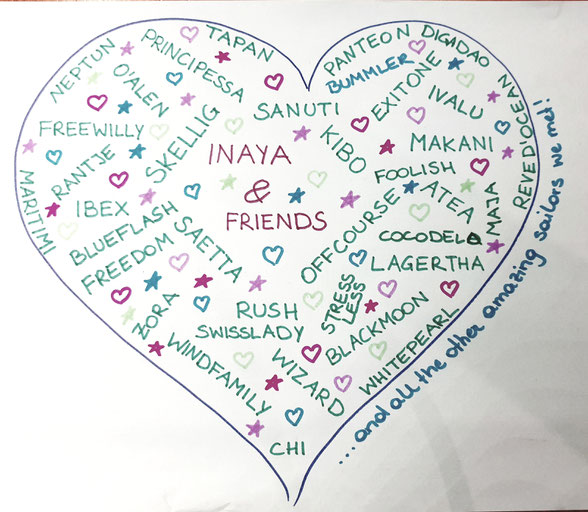 NEPTUN
PRINCIPESSA
TAPAN
PANTEON
DIGADAO
BUMMLER
O'ALEN
SKELLIG
SANUTI
EXITONE
IVALU
REVED'OCEAN
FREEWILLY
INAYA
&
FRIENDS
KIBO
MAKANI
RANTJE
FOOLISH
MARITIMI
IBEX
OFFCOURSE
ATEA
MAJA
BLUEFLASH
SAETTA
COCODELO
FREEDOM
LAGERTHA
ZORA
RUSH
STRESS
LESS
BLACKMOON
SWISSLADY
WINDFAMILY
WIZARD
WHITEPEARL
CHI
...and all the other amazing sailors we met!